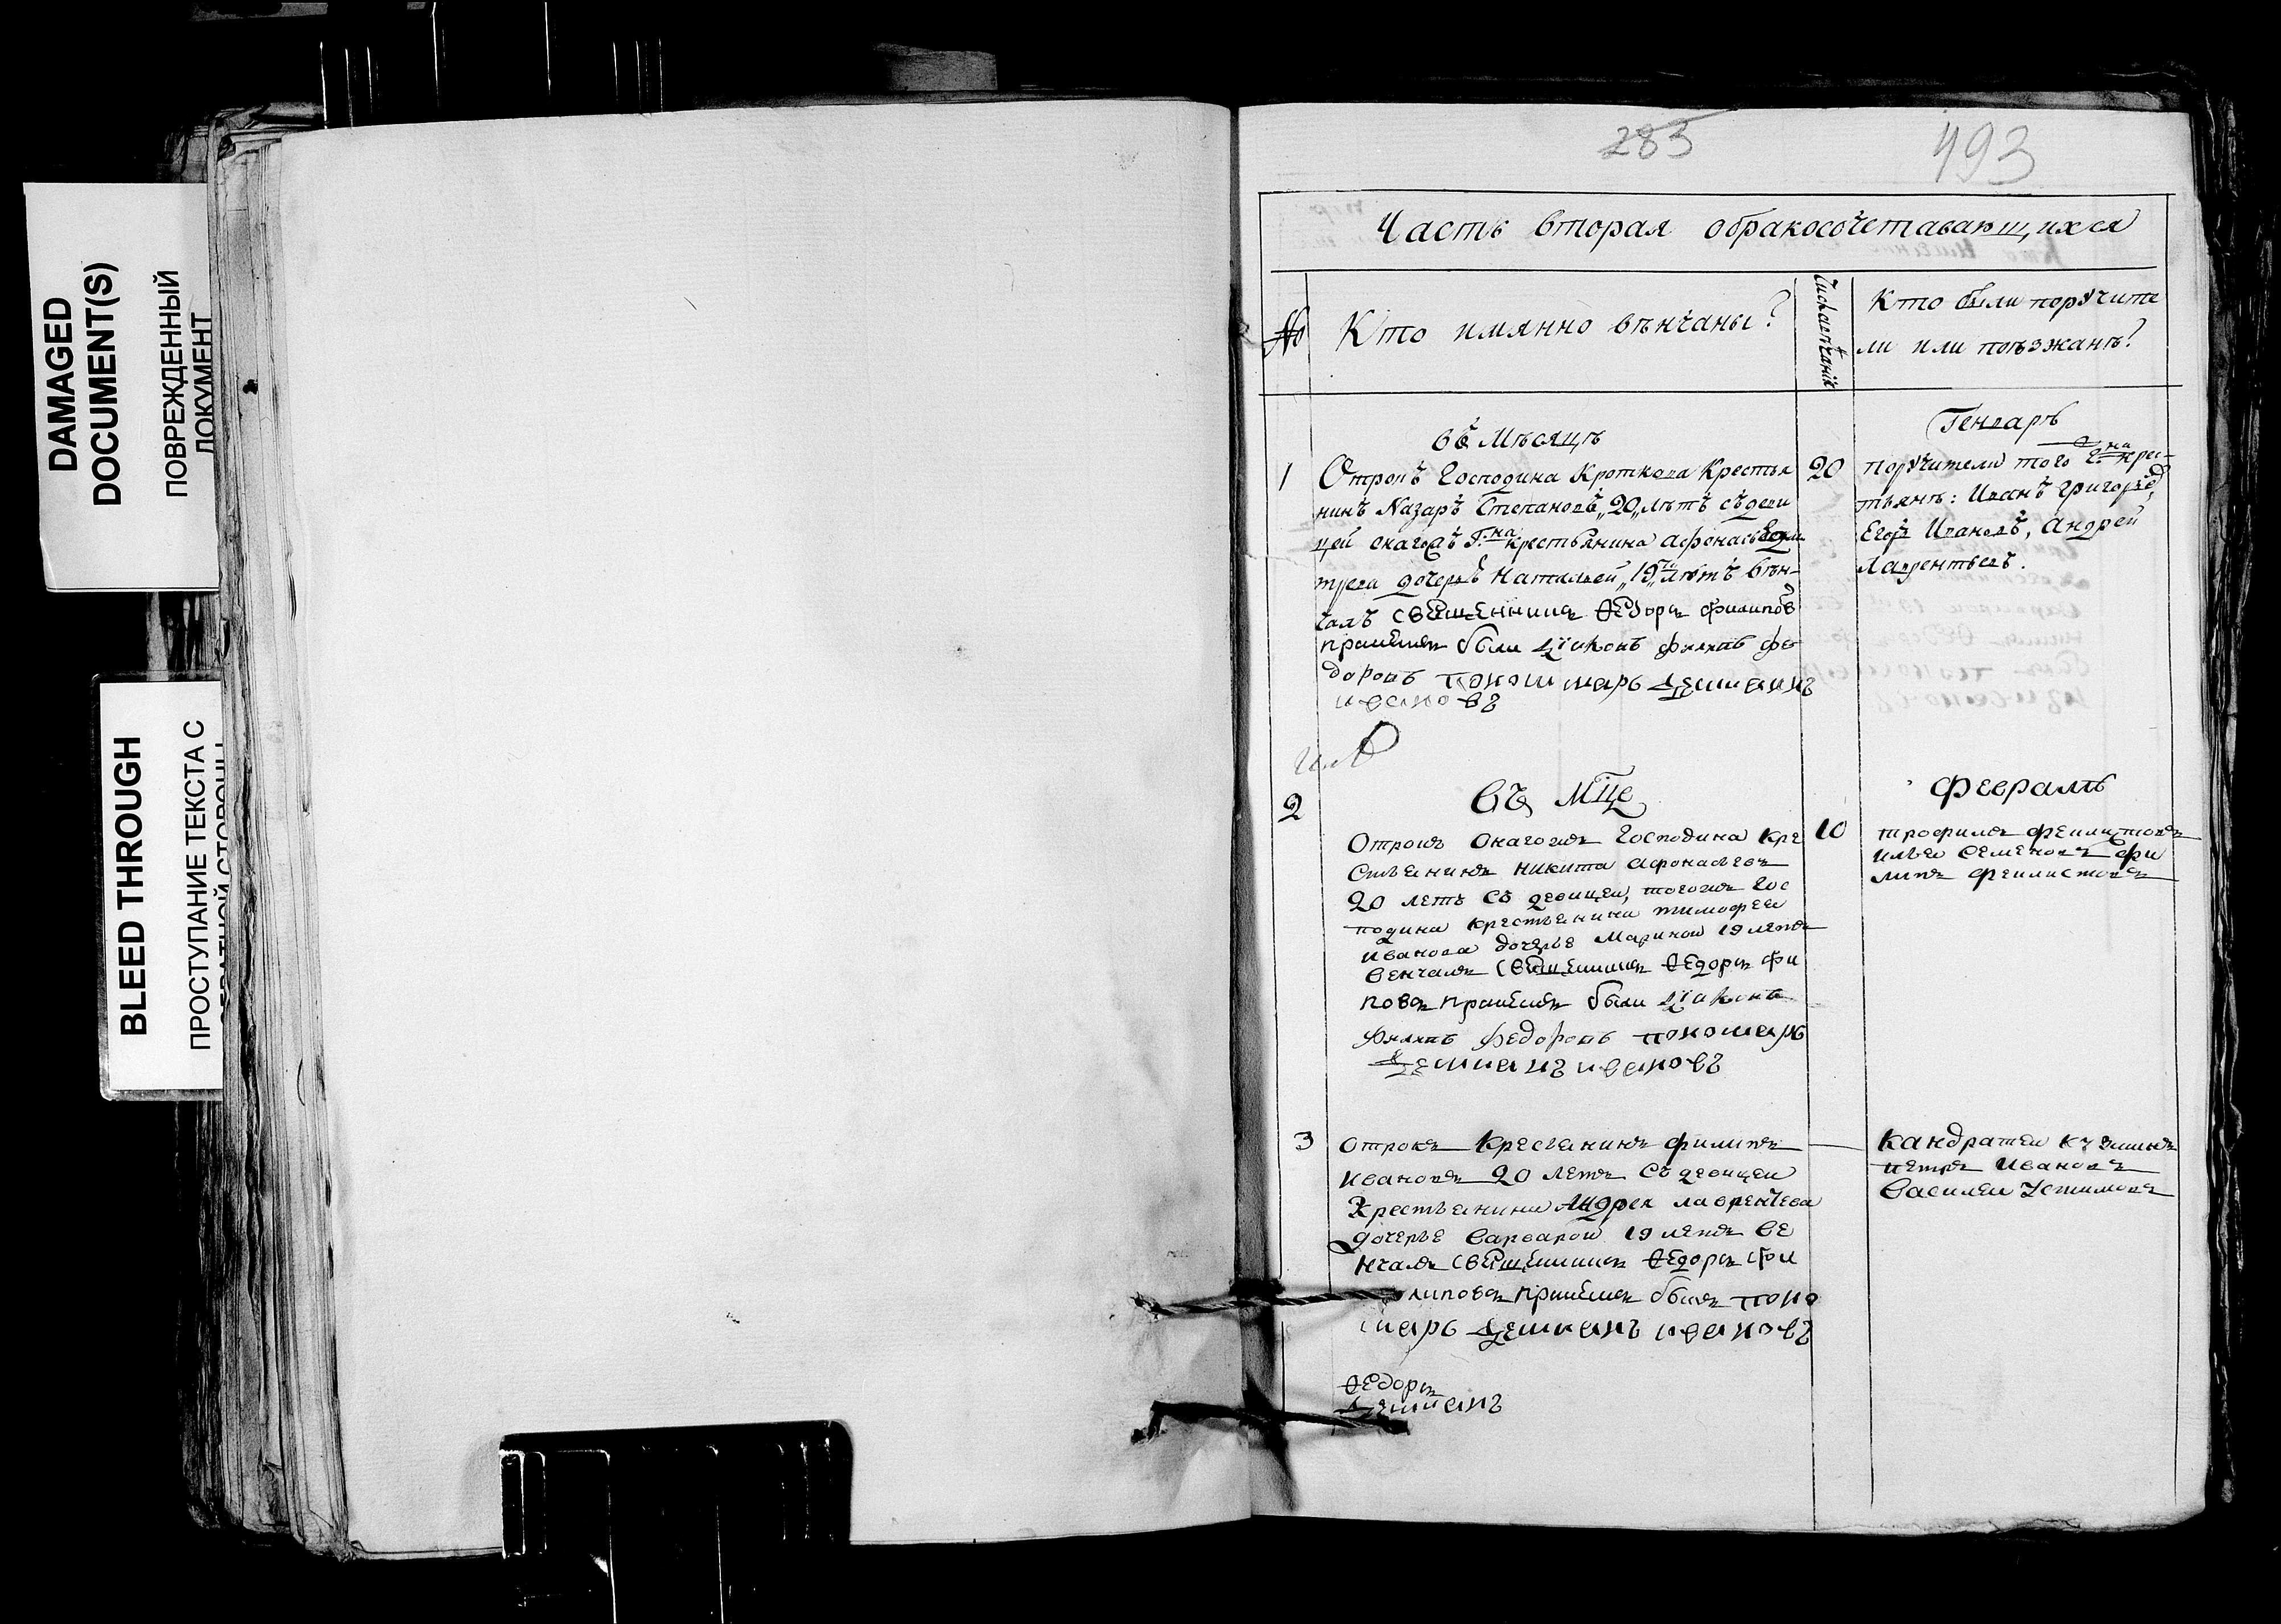 DAMAGED
DOCUMENT(S)
ПОВРЕЖДЕННЫЙ
ДОКУМЕНТ
BLEED THROUGH
ПРОСТУПАНИЕ ТЕКСТА С
ОБРАТНОЙ СТОРОНЫ
283
493
Часть вторая обракосочетавающихся
№
Кто имянно вѣнчаны?
Число вѣнчаній
Кто были поручите
ли или поѣзжанѣ?
въ Мѣсяцѣ
Генваръ
1
Отрокъ Господина Кроткова Крестья
нинъ Назаръ Степановъ „20„ лѣтъ съ деви
цей онагожъ Г.на крестьянина Афонасья Дми
трева дочерью Натальей „19„ лѣтъ вѣн-
чалъ священникъ Ѳедоръ Филиповъ
при немъ были діаконъ Филипъ Фе
доровъ пономарь Демианъ
ивановъ
20
поручители того Г.на крес-
тьянѣ: Иванъ Григорьевъ,
Егоръ Ивановъ, Андрей
Лаврентьевъ.
2
Въ мце
Февралѣ
Отрокъ Онагожъ Господина Кре
стьенинъ Никита Афонасьевъ
20 летъ Съ девицеи, тогожъ Гос
подина крестьенина тимофея
иванова дочерье Мариной 19 летъ
Венчалъ Священникъ Ѳедоръ Фи
повъ при немъ были діаконъ
Филипъ Федоровъ пономарь
Демианъ ивановъ
10
трофимъ Феилистовъ
илья Семеновъ Фи
липъ Феилистовъ
3
отрокъ Кресьенинъ филипъ
Ивановъ 20 летъ Съ девицеи
Крестьенина Андрея лаврентева
дочерье Варварои 19 летъ Ве
нчалъ Священникъ Ѳедоръ Фи
липовъ при немъ былъ поно
марь Демианъ ивановъ
Кандратеи Кузминъ
петръ Ивановъ
Василеи Устимовъ
Ѳедоръ
Демианъ